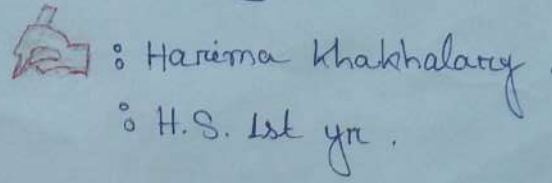 : Harima Khakhalary.
: H.S. 1st yr.